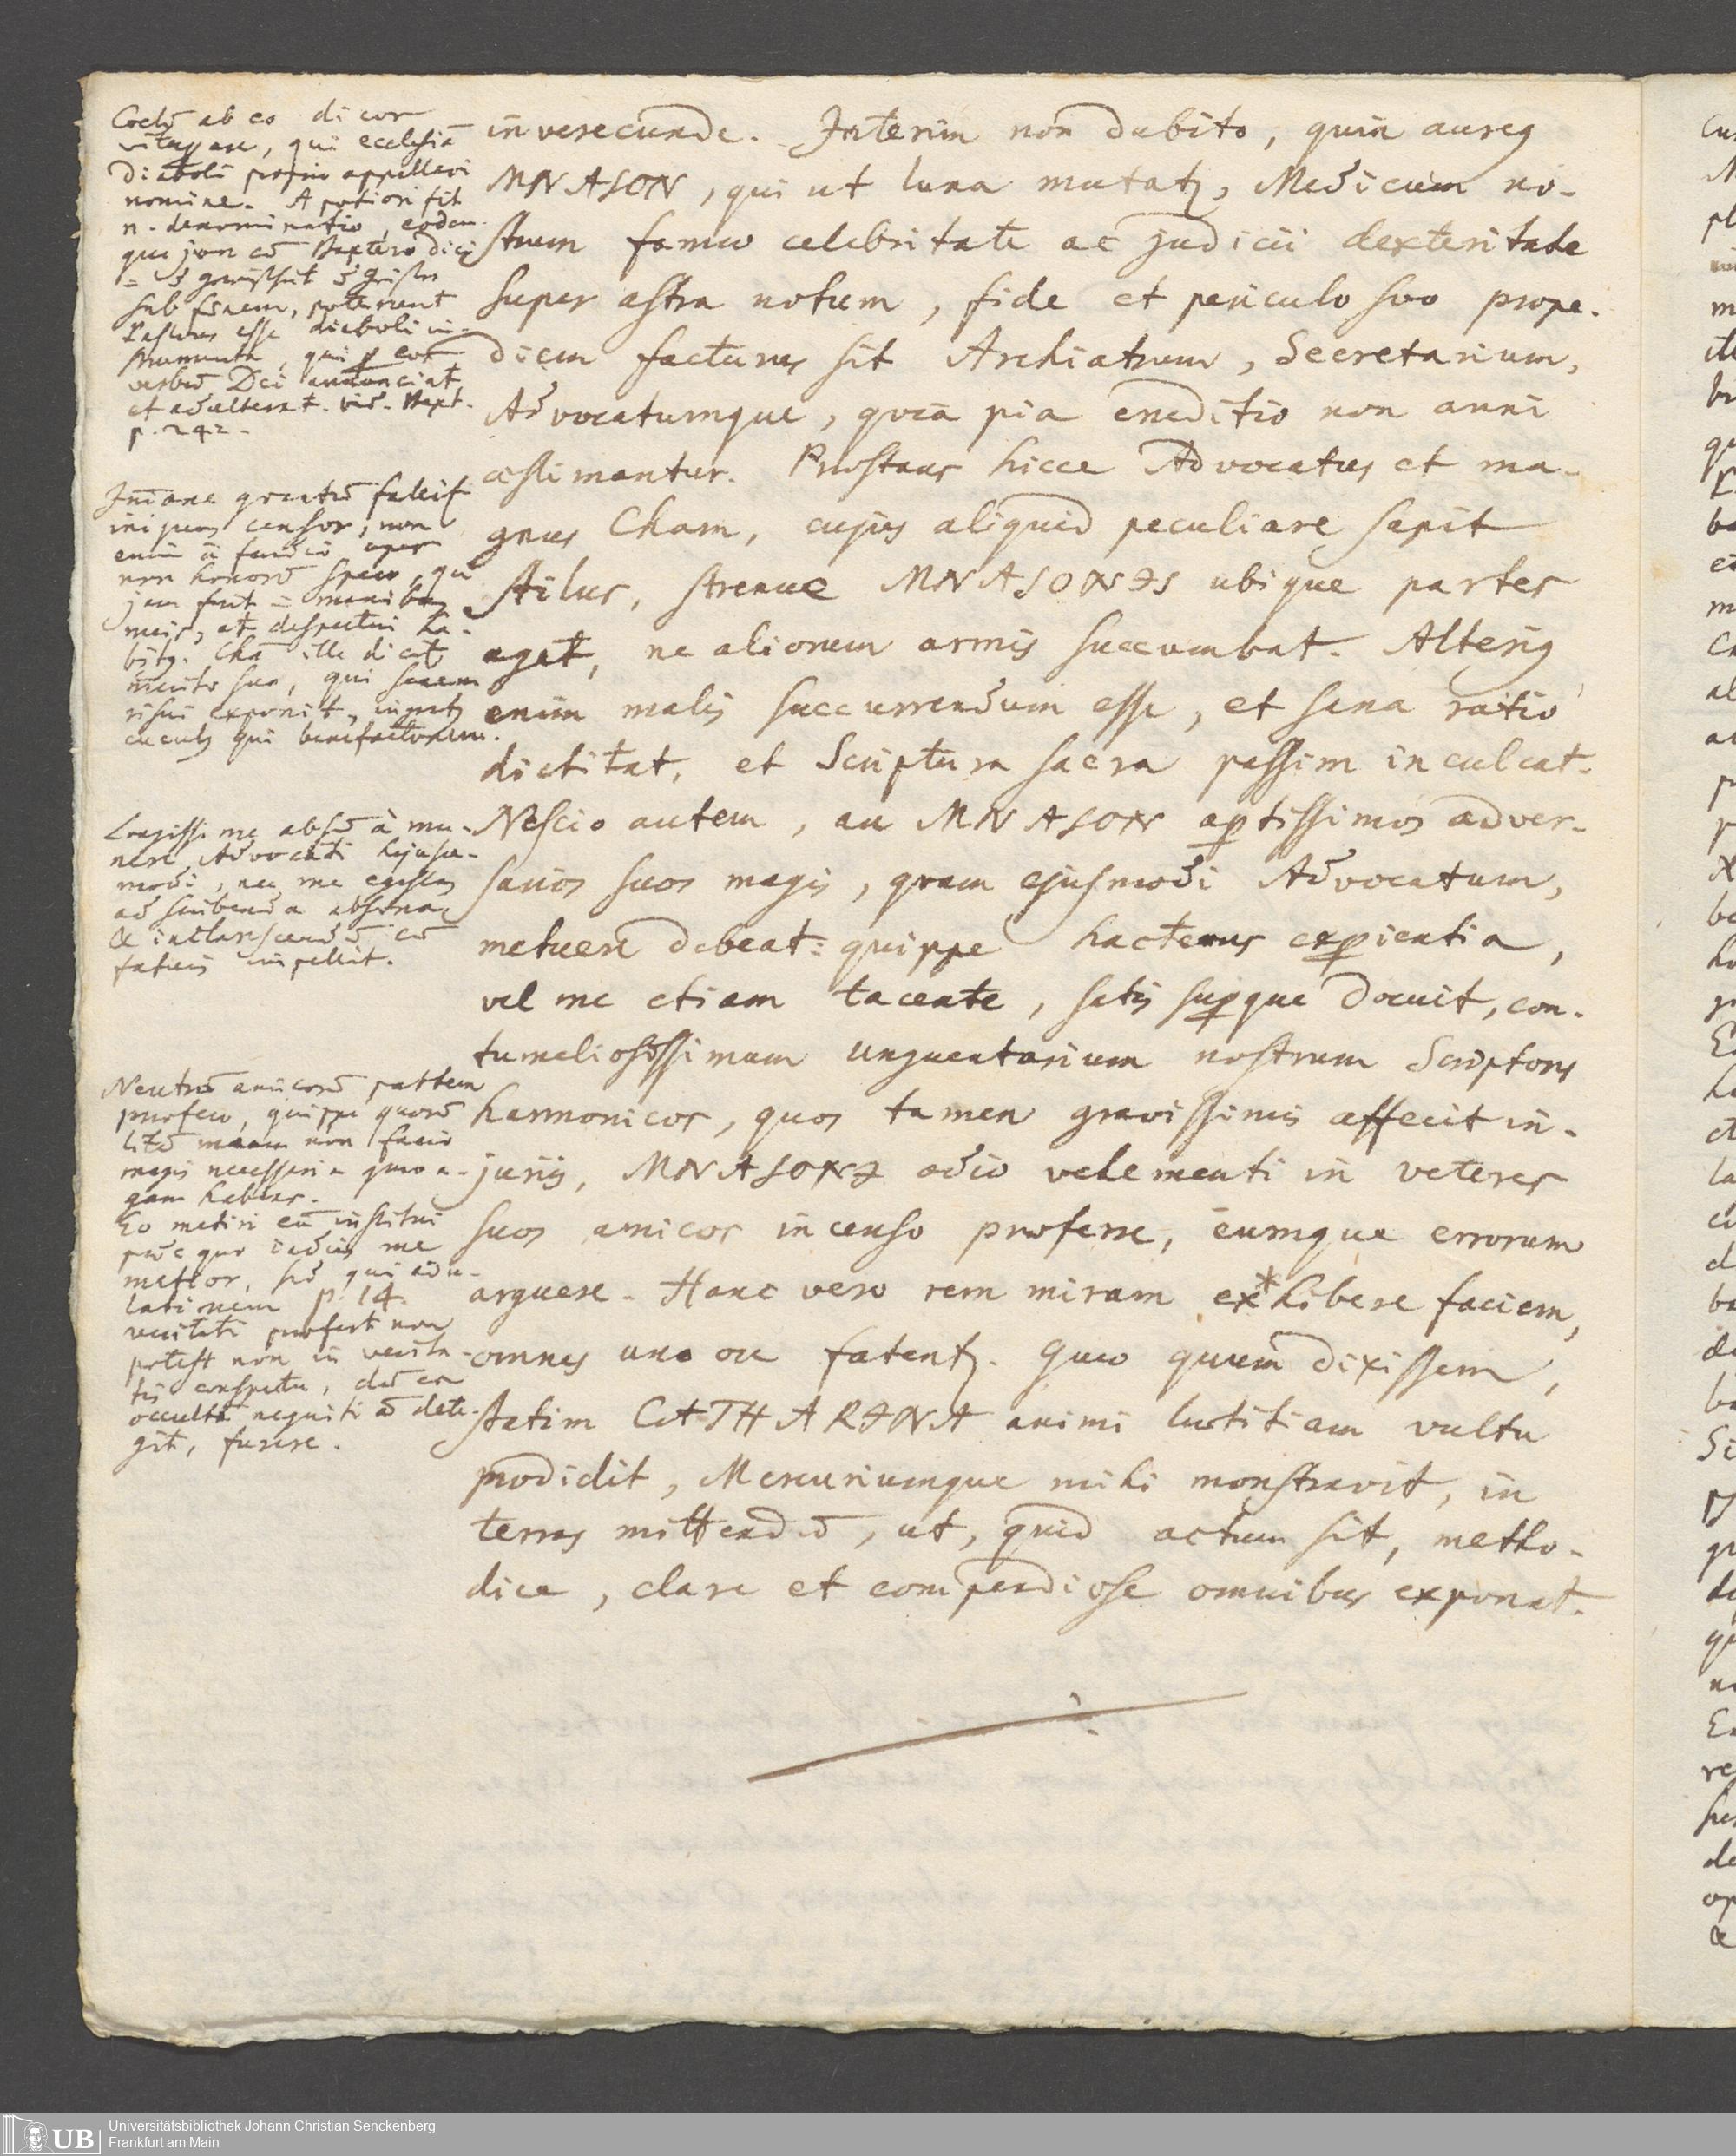 Coetū ab eo dicor
vituperare, qui ecclesiā
Diaboli proprio appellavi
nomine. A potiori fit
n. denominatio, eodem
que jure cū Baxtero dici
sub finem, poterunt
Pastores esse diaboli in-
strumenta, qui p eos
verbū Dei annonciat,
et adulterat. vid. Baxt.
p. 242.
Inane quaestū fallit
iniquus censor, non
enim
non honorū spem, qui
jam fuit = manibus
meis, at despectui ha-
bitz. Chā ille dicat
merito suo, qui senem
risui exponit, ingratz
cucutz qui benefactorum.
Longissime absū à mu-
nere Advocati hujusce-
modi, nec me egestas
ad scribenda absona,
& inclarescendū cū
fatuis impellit.
Neutrū amicorū partem
profero, quippe quorū
litē meam non facio
magis necessaria quo a-
gam habens.
Eo metiri eū institui
pede quo indies me
metior, sed qui adu-
lationem p. 14.
veritati profert non
potest non in verita-
tis conspectu, dum ea
occultā nequitiā dete-
git, furere.
inverecunde. Interim non dubito, quin aureus
MNASON, qui ut luna mutatz, Medicum no-
strum famae celebritate ac judicii dexteritate
super astra notum, fide et periculo suo prope-
diem facturus sit Archiatrum, Secretarium,
Advocatumque, qvia pia eruditio non anni
aestimantur. Prostans hicce Advocatus et ma-
gnus Cham, cujus aliquid peculiare sapit
stilus, strenue MNASONIS ubique partes
aget, ne aliorum armis succumbat. Alterius
enim malis succurrendum esse, et sana ratio
dictitat, et Scriptura sacra passim inculcat.
Nescio autem, an MNASON aptissimos adver-
sarios suos magis, quam ejusmodi Advocatum,
metuere debeat: quippe hactenus expientia,
vel me etiam tacente, satis supque docuit, con-
tumeliosissimum unguentarium nostrum Scriptores
harmonicos, quos tamen gravissimis affecit in-
juriis, MNASONI odio vehementi in veteres
suos amicos incenso proferre, eumque errorum
arguere. Hanc vero rem miram ex*hibere faciem,
omnes uno ore fatentz. Quae quum dixissem,
statim CATHARINA animi laetitiam vultu
prodidit, Mercuriumque mihi monstravit, in
terras mittendū, ut, quid actum sit, metho-
dice, clare et compendiose omnibus exponat.
UB Universitätsbibliothek Johann Christian Senckenberg
Frankfurt am Main